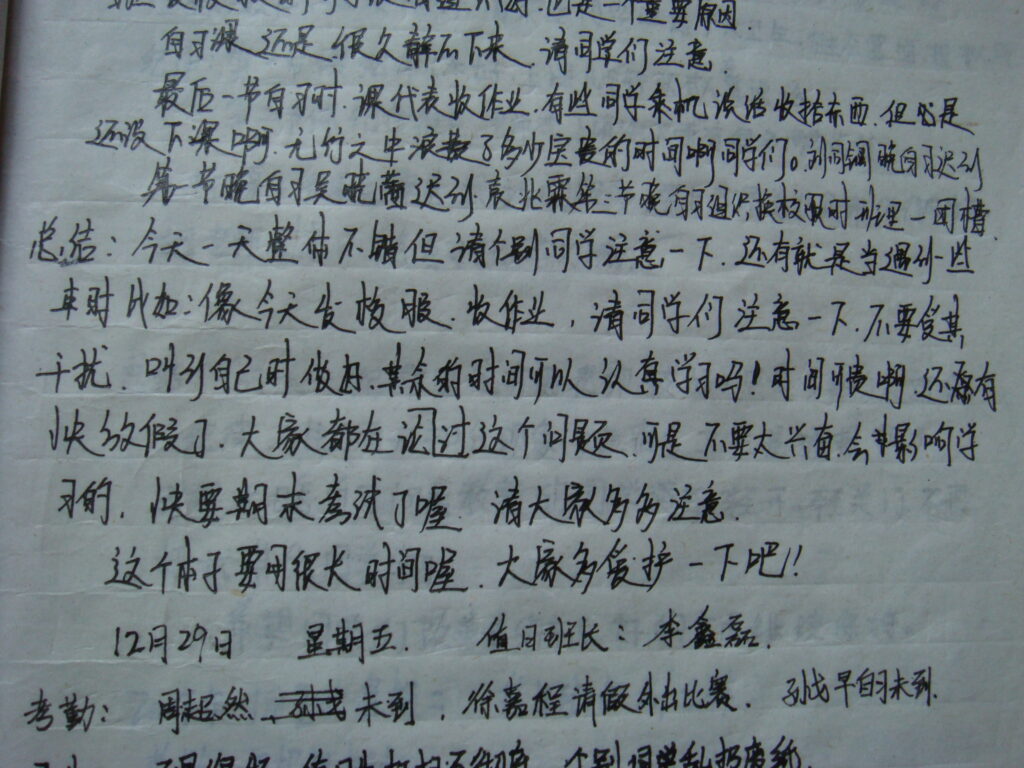 也是一个重要原因.
自习课还是很久静不下来.请同学们注意.
最后一节自习时.课代表收作业.有些同学乘机说话收拾东西.但也是
还没下课啊.无行之中浪费了多少宝贵的时间啊同学们。刘同钢晚自习迟到
第节晚自习吴晓菌迟到.袁兆霖第三节晚自习组织换校服时班里一团糟.
总结:今天一天整体不错但请个别同学注意一下.还有就是当遇到一些
事时比如:像今天发校服.收作业,请同学们注意一下.不要受其
干扰.叫到自己时做好.其余的时间可以认真学习吗!时间可贵啊.还有
快放假了.大家都在讨论过这个问题.可是不要太兴奋.会影响学
习的.快要期末考试了喔.请大家多多注意.
这个本子要用很长时间喔.大家多爱护一下吧!!
12月29日 星期五. 值日班长:李鑫磊.
考勤: 周超然、未到,徐嘉程请假外出比赛. 孙戈早自习未到.
个别同学乱扔废纸